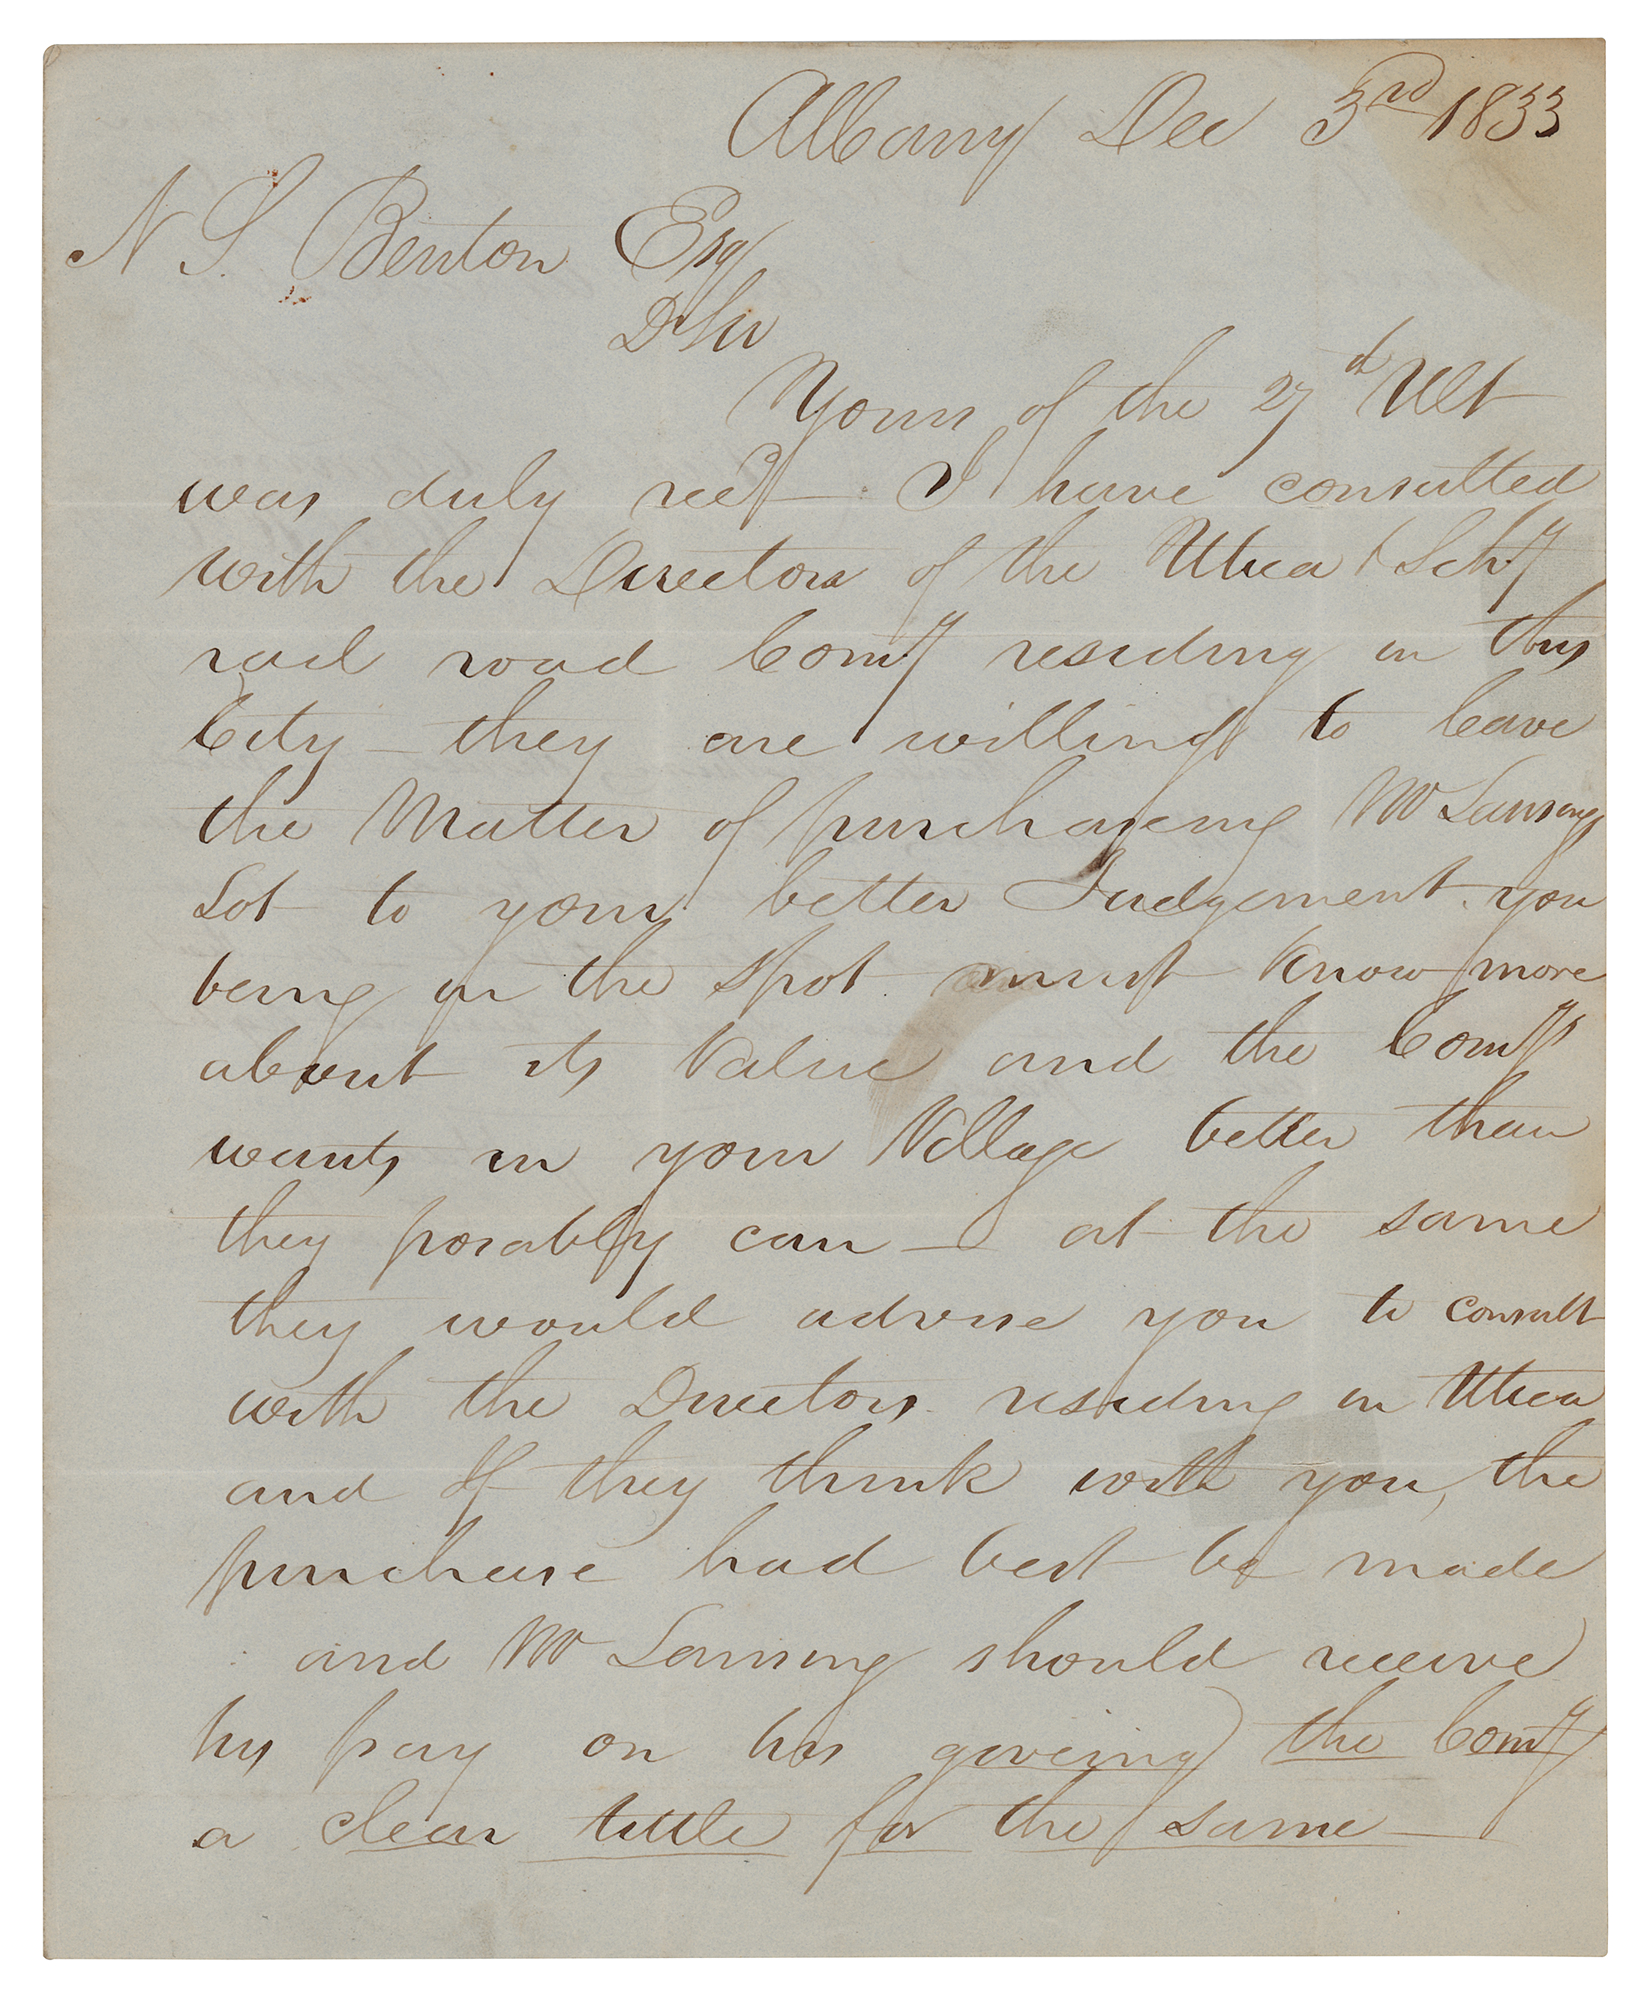 Albany Dec 3rd 1833
N S. Benton Esqr
D Sir
Yours of the 27th Ult
was duly recd I have consulted
with the Directors of the Utica & Schy
rail road Comy residing in this
City – they are willing to leave
the Matter of purchaseing Mr Lansings
Lot to your better Judgement. you
being on the spot must know more
about its Value and the Comys
wants in your Village better than
they posably can – at the same
they would advise you to consult
with the Directors residing in Utica
and If they think with you, the
purchase had best be made
and Mr Lansing should receive
his pay on his giveing the Comy
a clear tittle for the same –